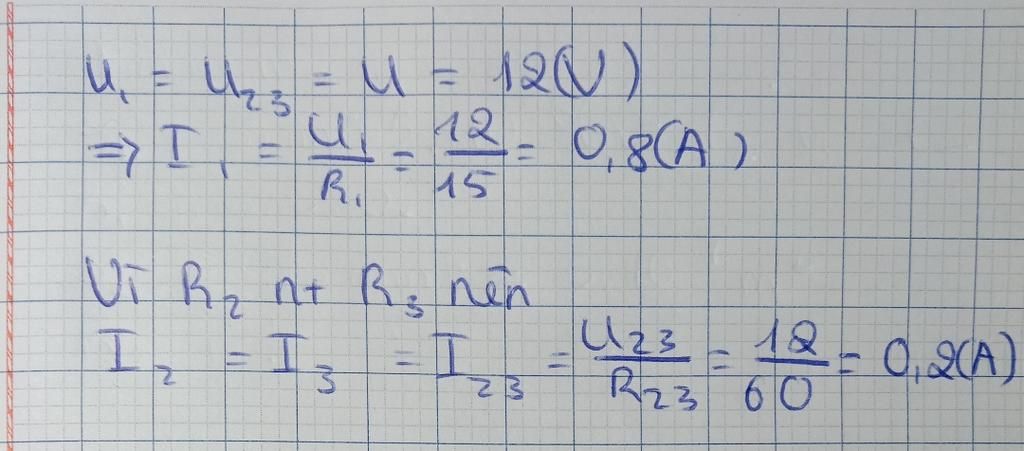 U₁ = U₂₃ = U = 12(V)
⇒ I₁ = U₁/R₁ = 12/15 = 0,8(A)
Vì R₂ nt R₃ nên
I₂ = I₃ = I₂₃ = U₂₃/R₂₃ = 12/60 = 0,2(A)